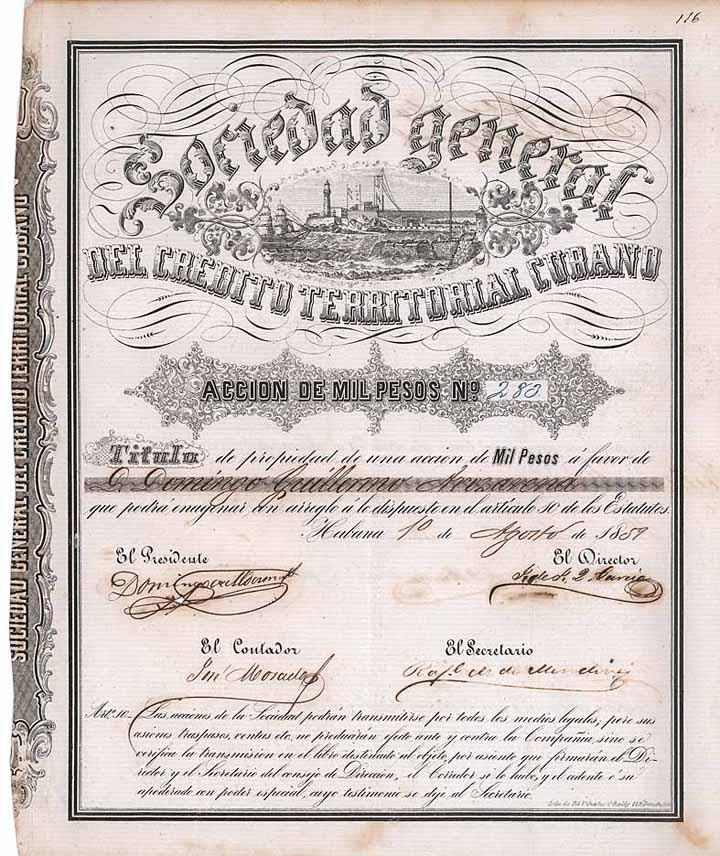 116
Sociedad general
DEL CREDITO TERRITORIAL CUBANO
SOCIEDAD GENERAL DEL CREDITO TERRITORIAL CUBANO
ACCION DE MIL PESOS Nº 283
Titulo de propiedad de una accion de Mil Pesos á favor de
D. Domingo Guillermo Arozarena
que podrá enagenar con arreglo á lo dispuesto en el artículo 10 de los Estatutos.
Habana 1º de Agosto de 1859
El Presidente
El Director
Domingo Guillermo
García
El Contador
El Secretario
José Morado
Art.º 10. Las acciones de la Sociedad podrán transmitirse por todos los medios legales, pero sus
cesiones traspasos, ventas etc. no producirán efecto ante y contra la Compañia, sino se
verifica la transmision en el libro destinado al objeto, por asiento que firmarán el Di-
rector y el Secretario del consejo de Direccion, el Corredor si lo hubo, y el cedente ó su
apoderado con poder especial, cuyo testimonio se deje al Secretario.